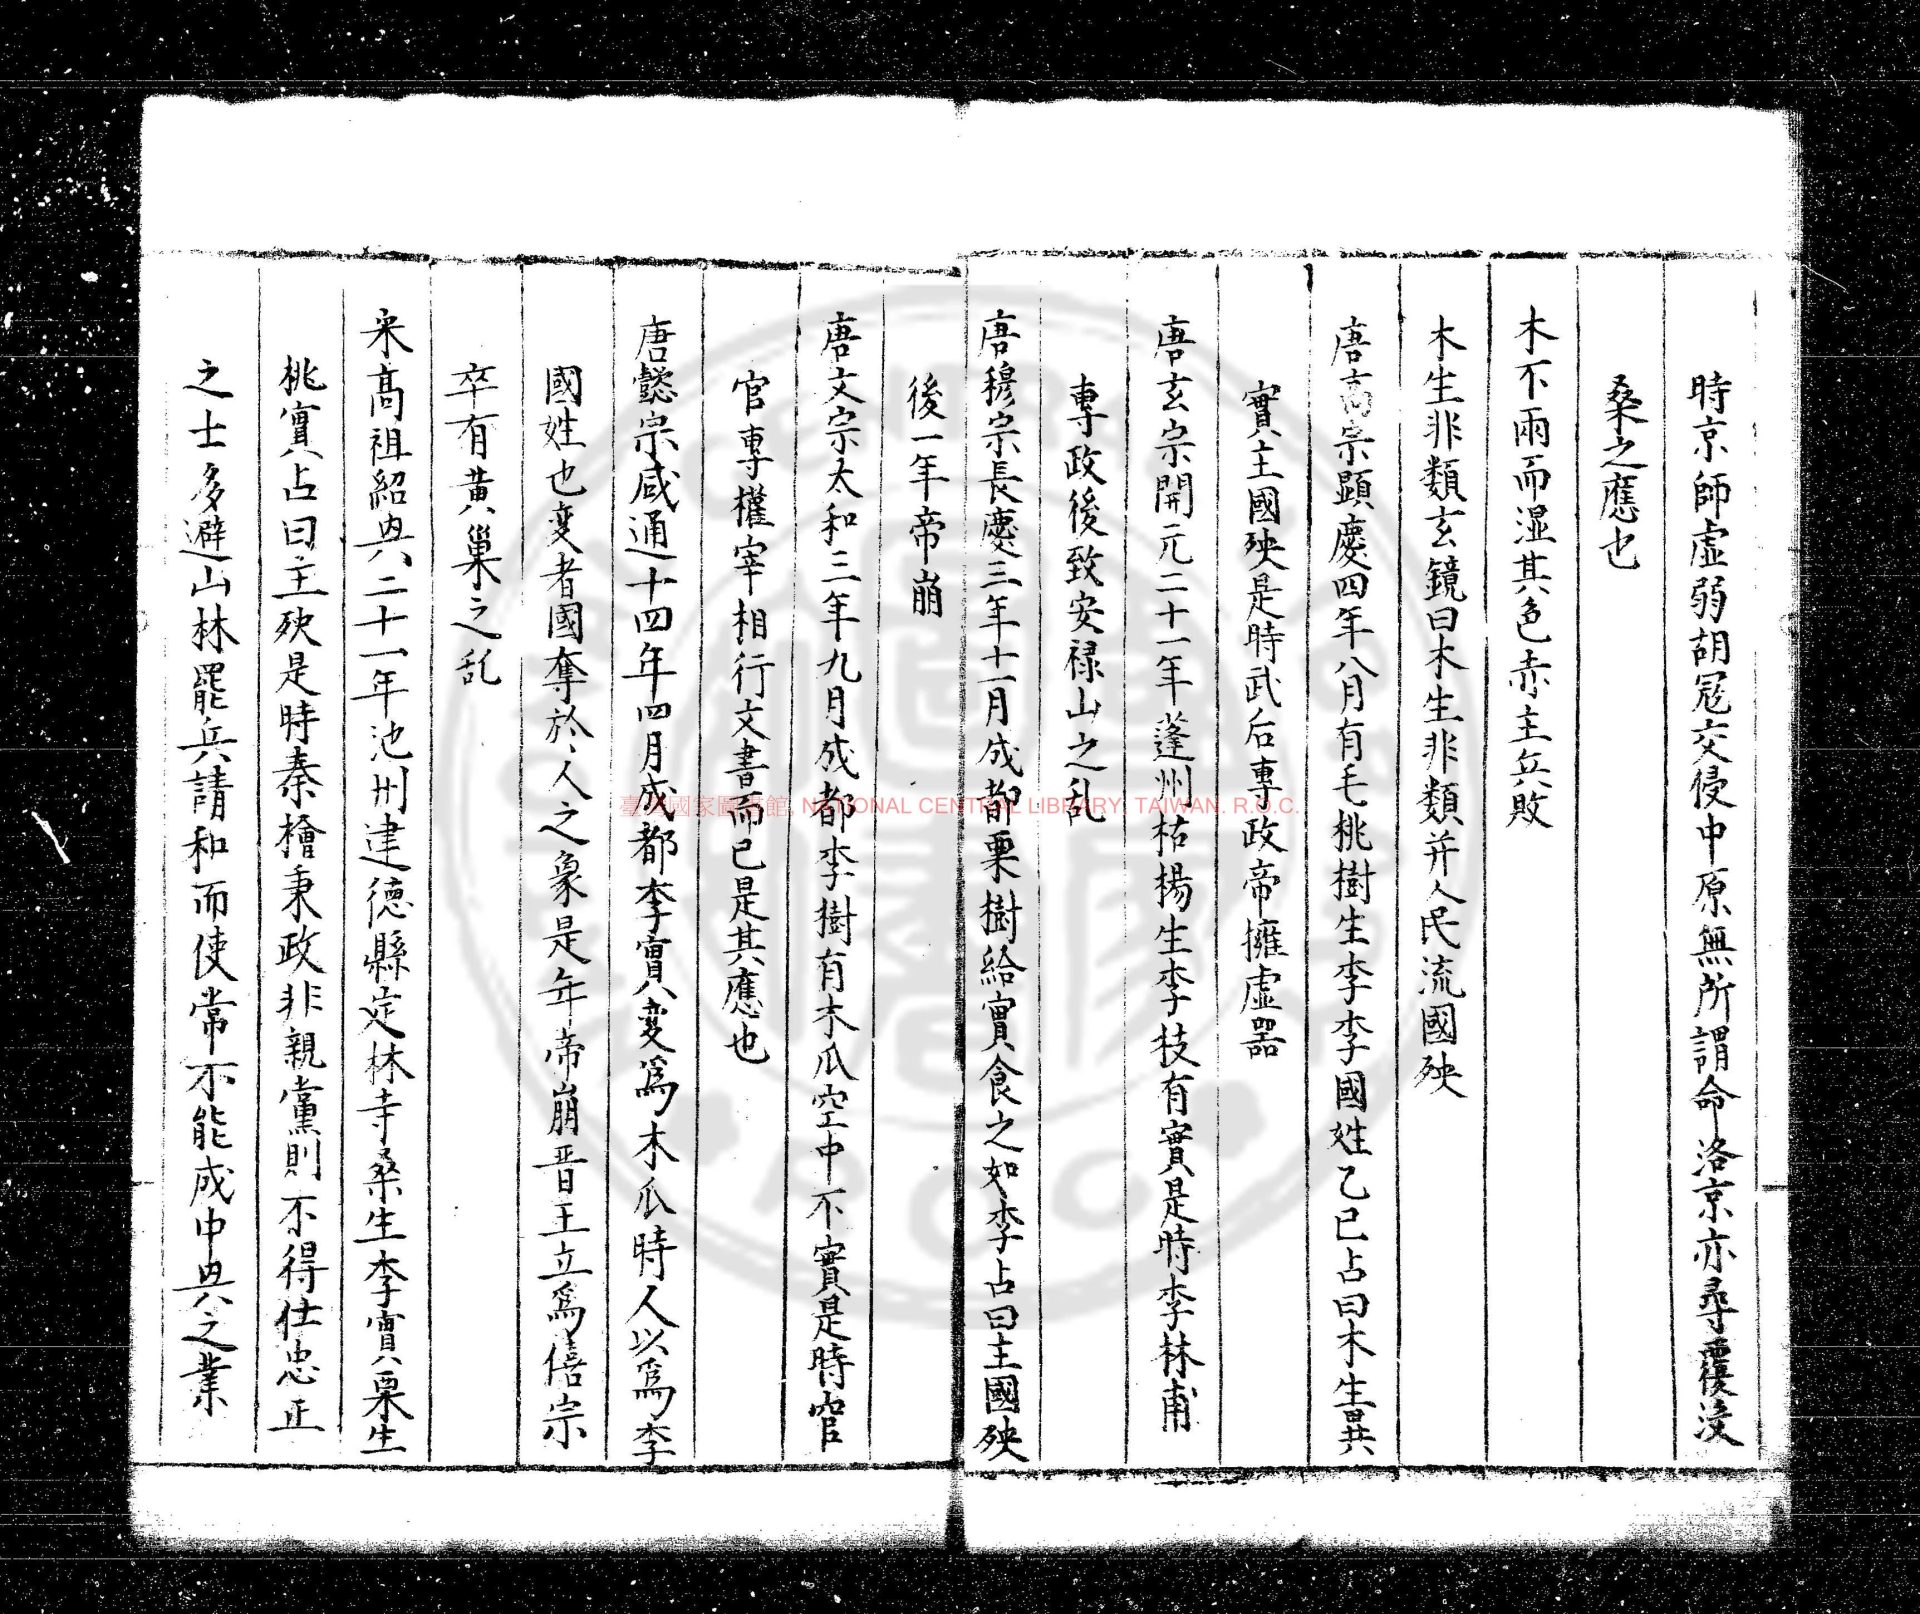 時京師虛弱胡冦交侵中原無所謂命洛京亦尋覆没
桑之應也
木不雨而湿其色赤主兵敗
木生非類玄鏡曰木生非類并人民流國殃
唐高宗顕慶四年八月有毛桃樹生李李國姓乙巳占曰木生異
實主國殃是時武后專政帝擁虛器
唐玄宗開元二十一年蓬州枯楊生李枝有實是時李林甫
專政後致安禄山之乱
唐穆宗長慶三年十一月成都栗樹給實食之如李占曰主國殃
後一年帝崩
唐文宗太和三年九月成都李樹有木瓜空中不實是時宦
官專權宰相行文書而已是其應也
唐懿宗咸通十四年四月成都李實変爲木瓜時人以爲李
國姓也変者國奪於人之象是年帝崩晋王立爲僖宗
卒有黄巢之乱
宋髙祖紹興二十一年池州建德縣定林寺桑生李實栗生
桃實占曰主殃是時秦檜秉政非親黨則不得仕忠正
之士多避山林罷兵請和而使常不能成中興之業
臺灣國家圖書館, NATIONAL CENTRAL LIBRARY, TAIWAN. R.O.C.